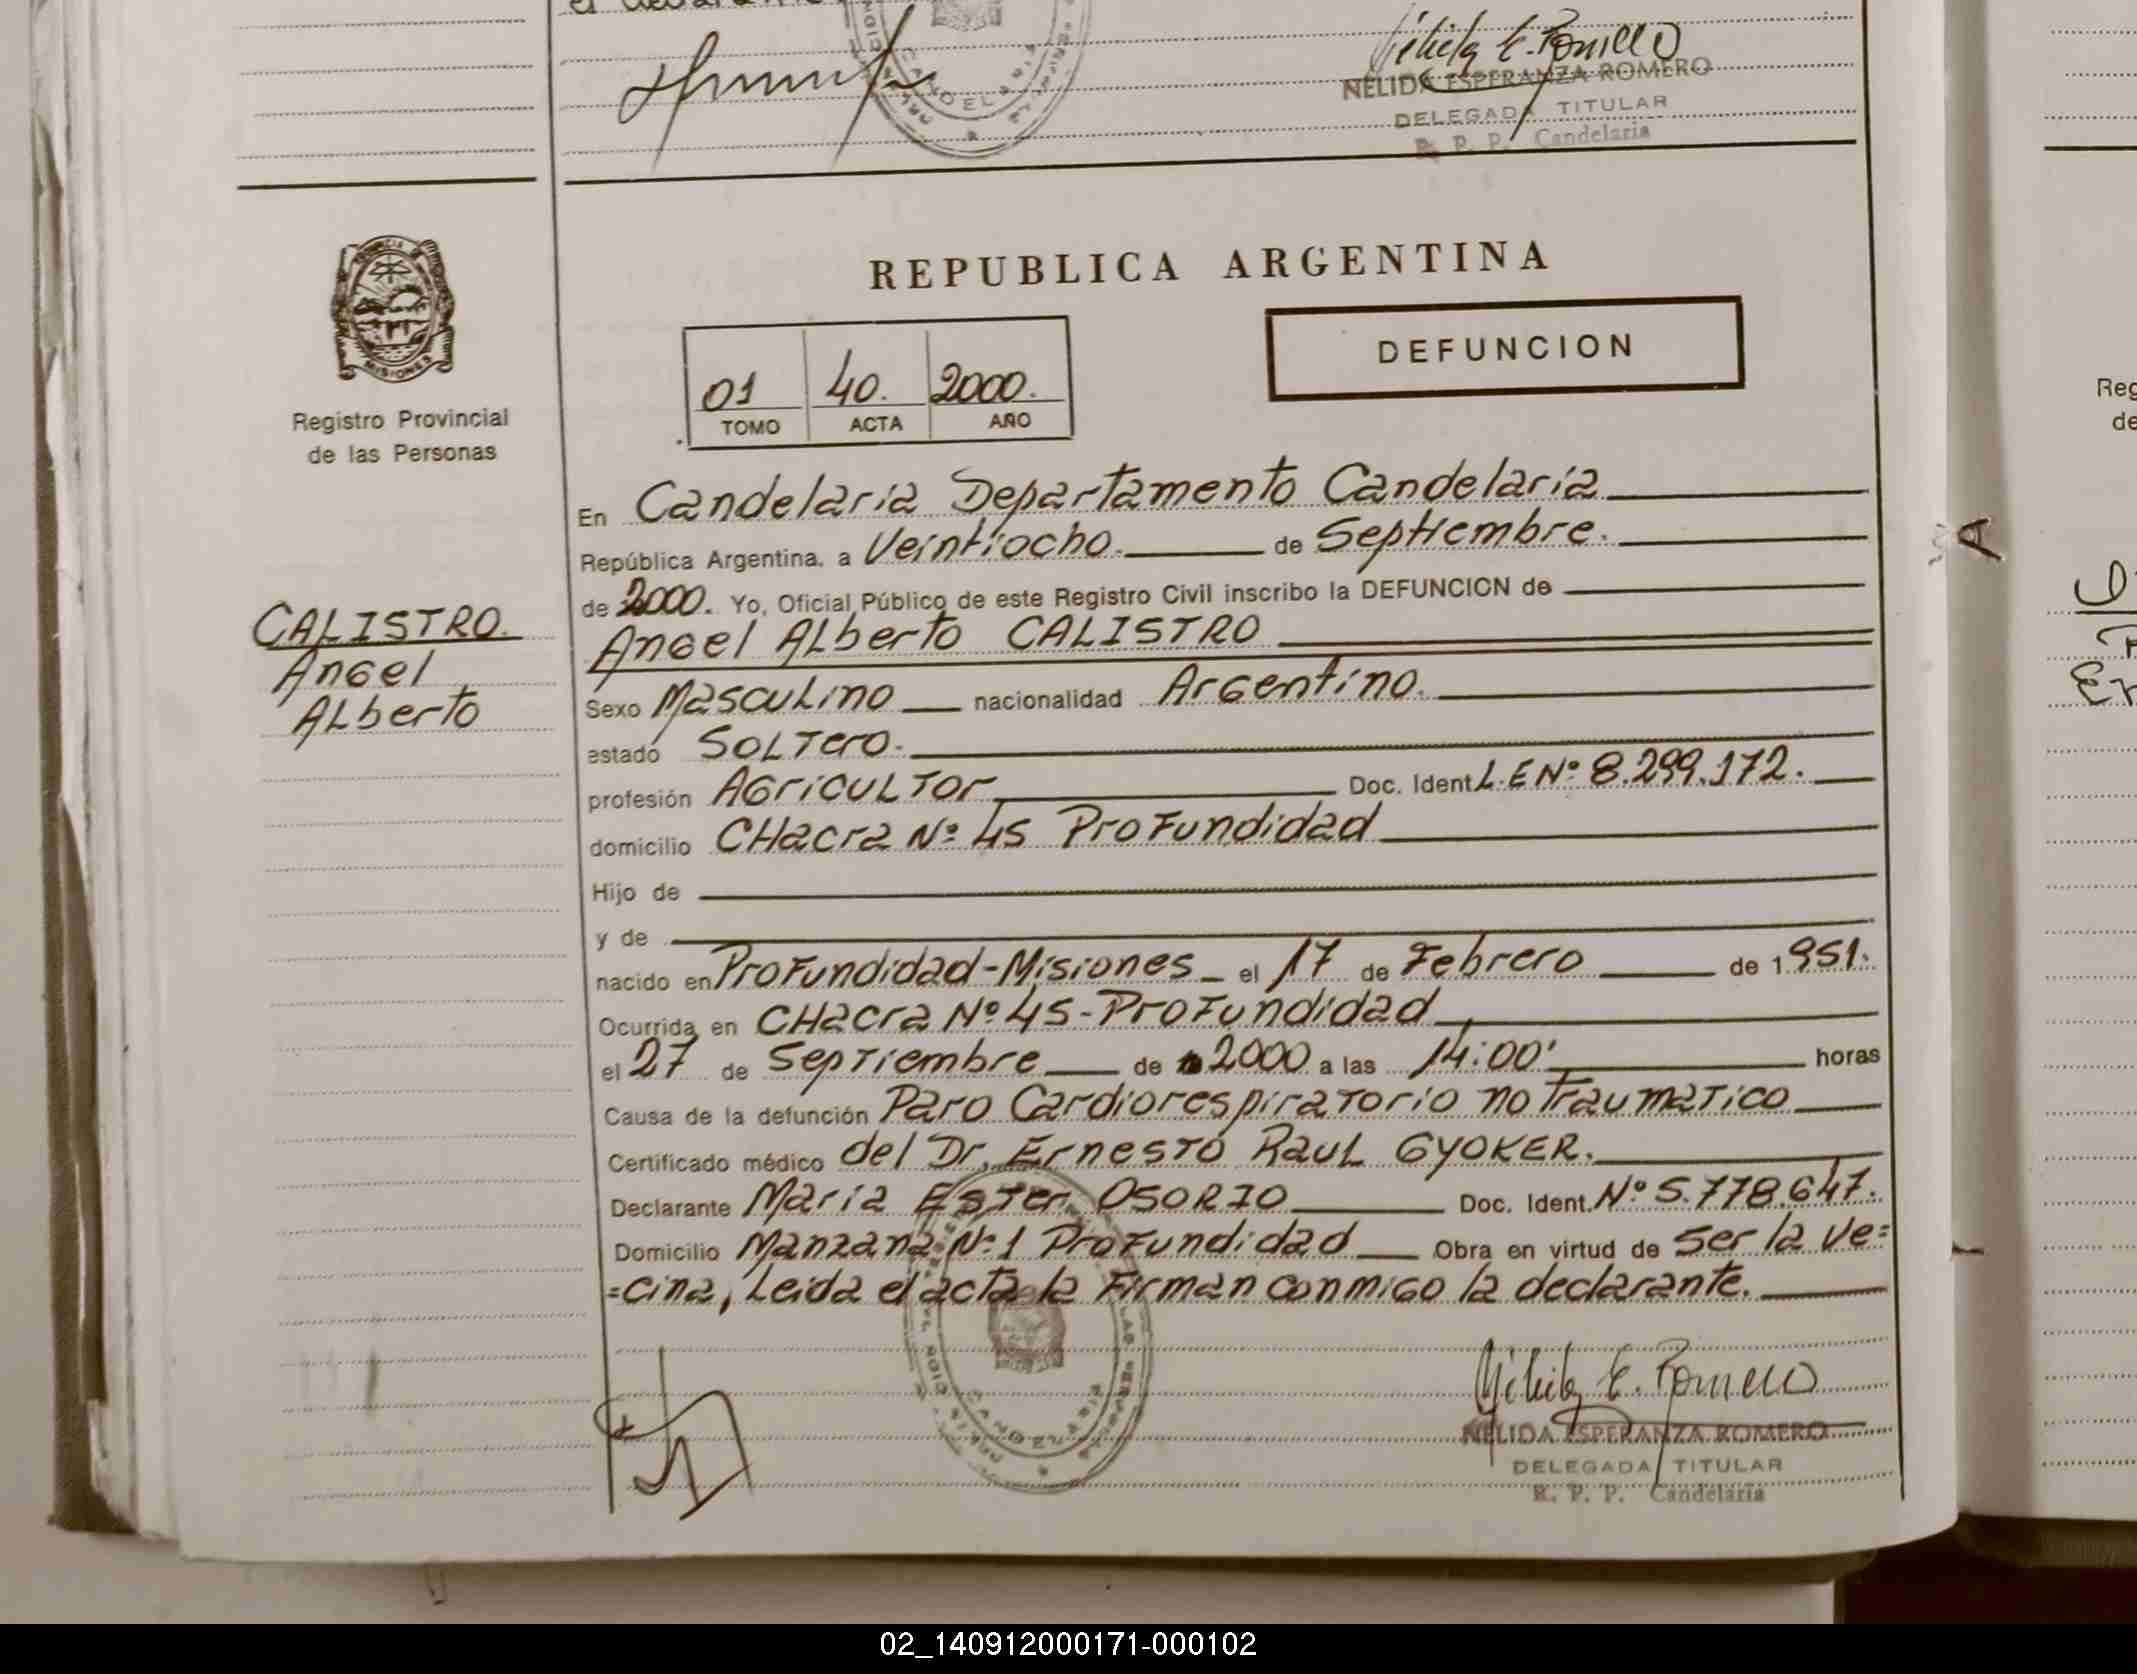 NELIDA ESPERANZA ROMERO
DELEGADA TITULAR
R. P. P. Candelaria
CANDELARIA
MISIONES
Registro Provincial
de las Personas
REPUBLICA ARGENTINA
01 40. 2000.
TOMO ACTA AÑO
DEFUNCION
CALISTRO.
Angel
Alberto
En Candelaria Departamento Candelaria
República Argentina, a Veintiocho. de Septiembre.
de 2000. Yo, Oficial Público de este Registro Civil inscribo la DEFUNCION de
Angel Alberto CALISTRO
Sexo Masculino nacionalidad Argentino.
estado Soltero.
profesión Agricultor Doc. Ident. L.E Nº 8.299.172.
domicilio CHacra Nº 45 Profundidad
Hijo de
y de
nacido en Profundidad-Misiones el 17 de Febrero de 1951.
Ocurrida en CHacra Nº 45-Profundidad
el 27 de Septiembre de 2000 a las 14:00' horas
Causa de la defunción Paro Cardiorespiratorio no Traumatico
Certificado médico del Dr. Ernesto Raul GYOKER.
Declarante María Ester OSORIO Doc. Ident. Nº 5.778.647.
Domicilio Manzana Nº1 Profundidad Obra en virtud de ser la ve=
=cina, Leida el acta la Firman conmigo la declarante.
CANDELARIA
NELIDA ESPERANZA ROMERO
DELEGADA TITULAR
R. P. P. Candelaria
A
02_140912000171-000102